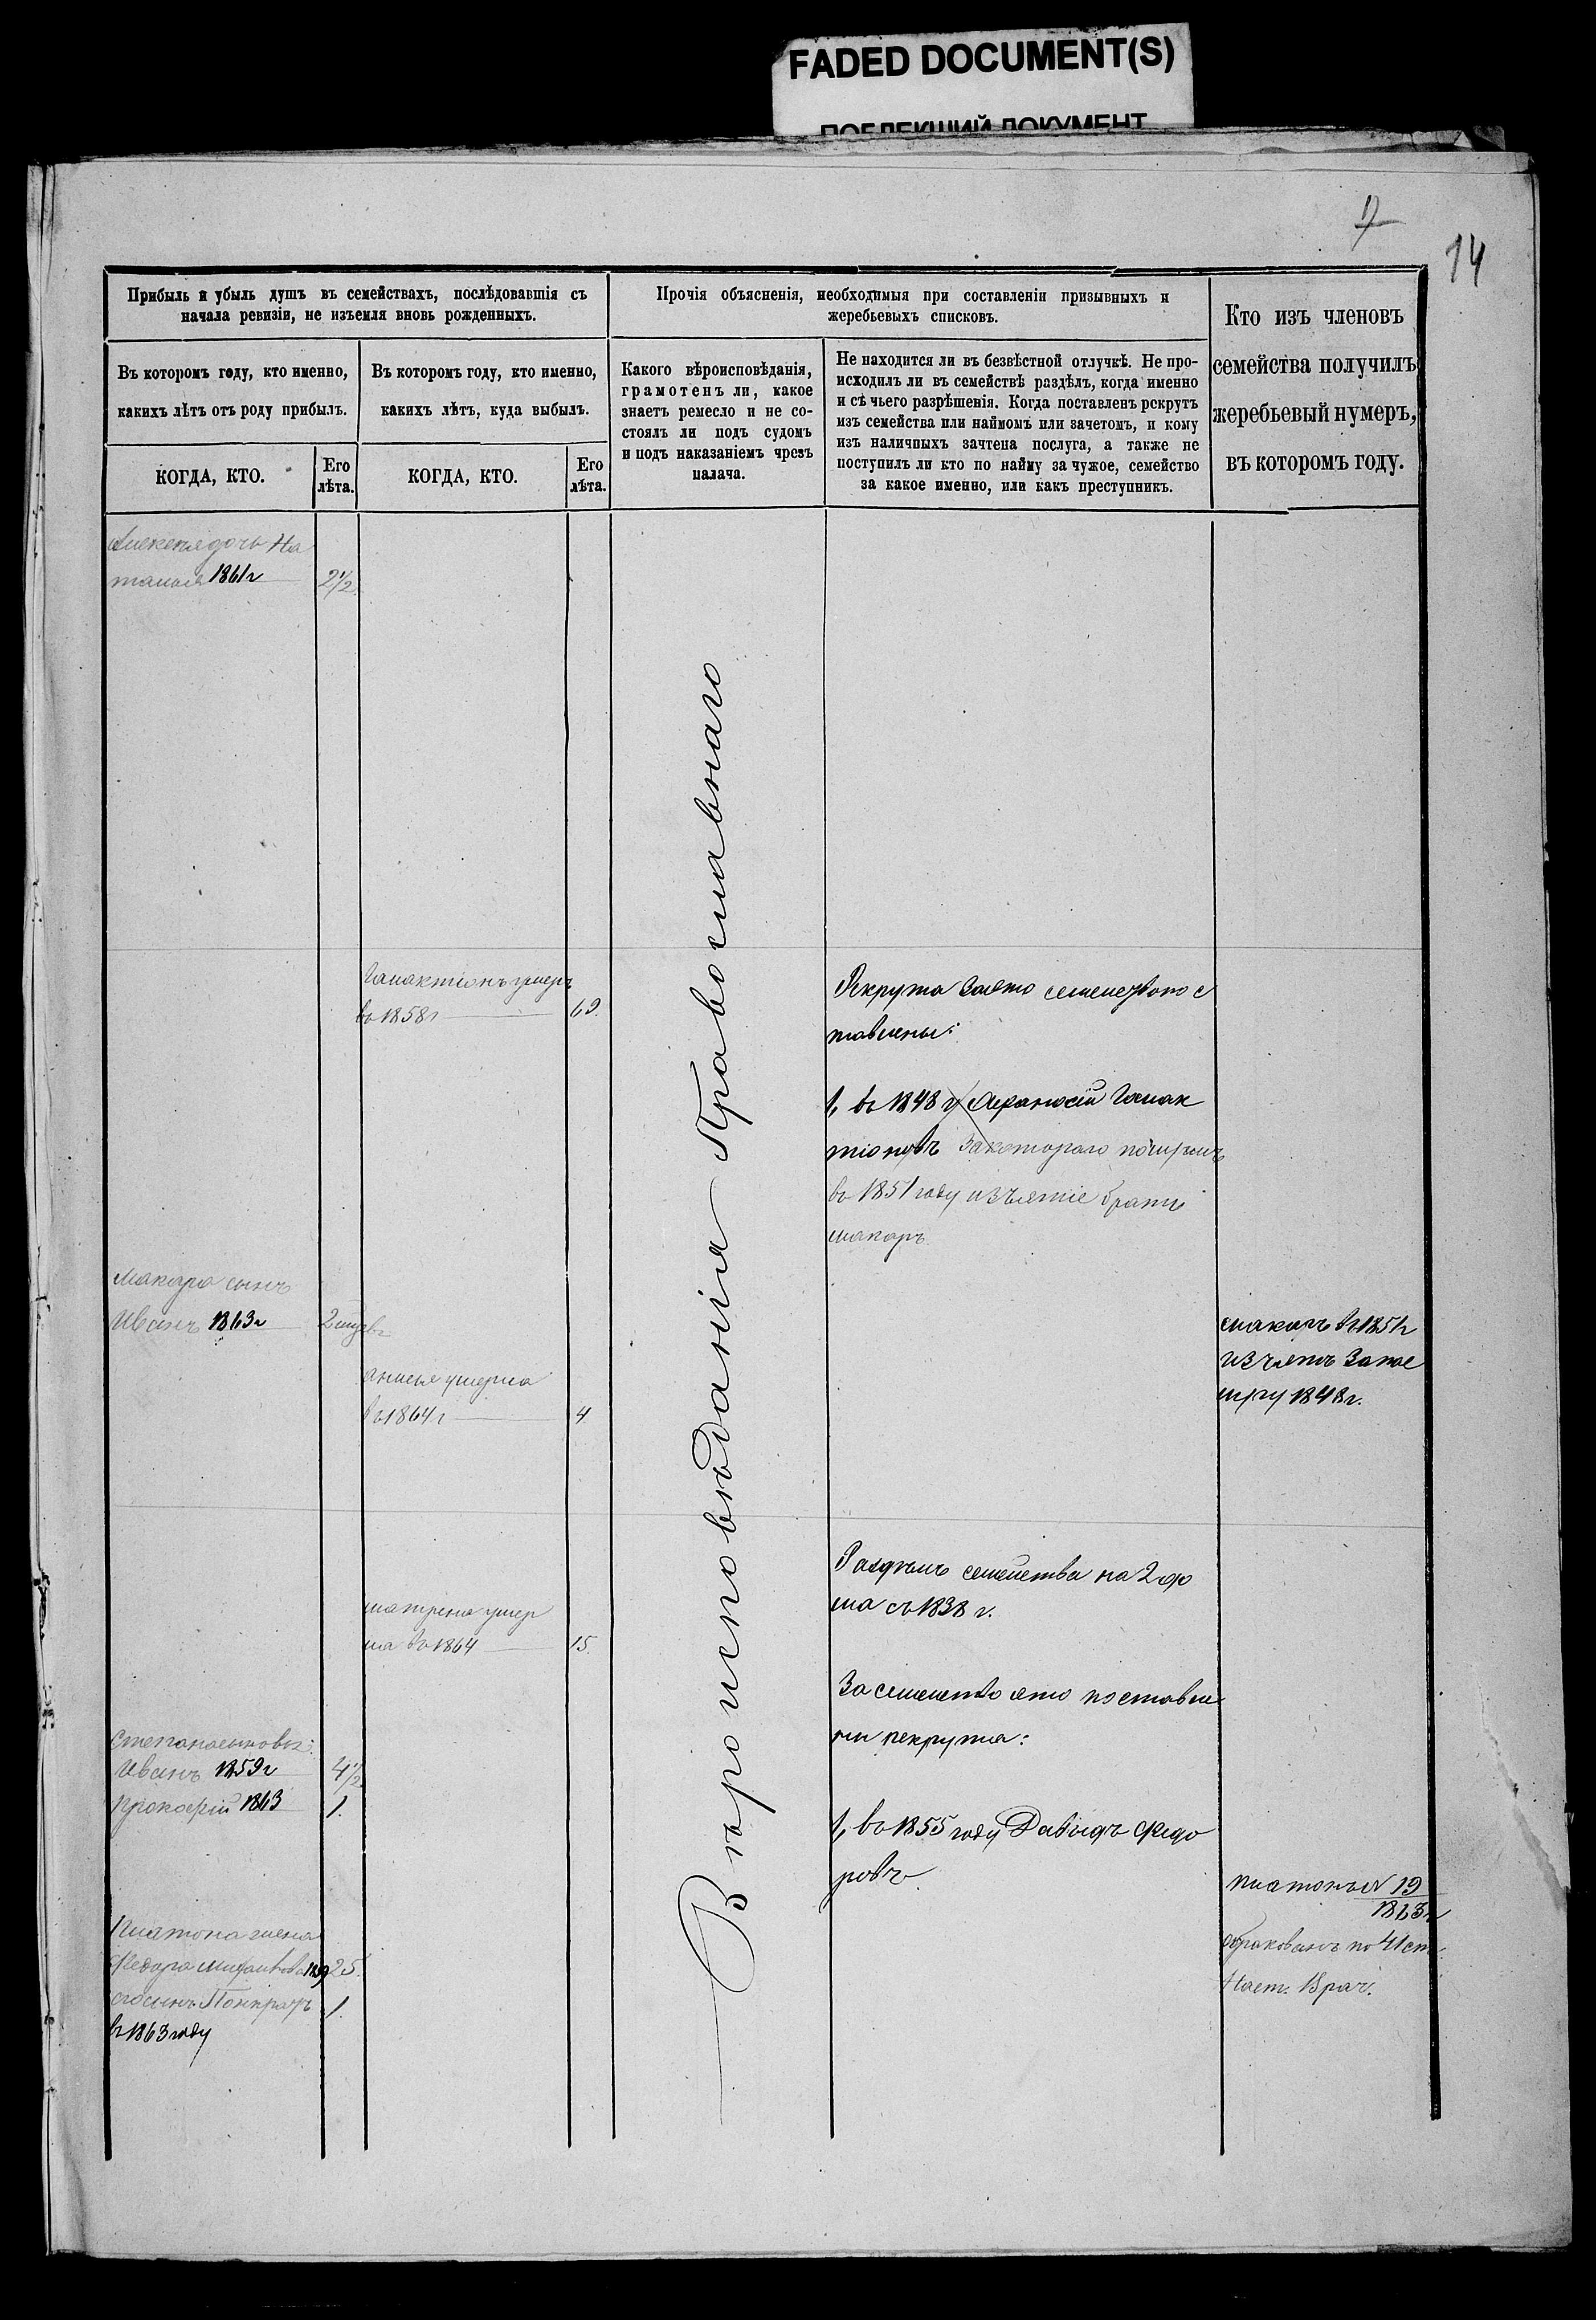 FADED DOCUMENT(S)
ПОБЛЕКШИЙ ДОКУМЕНТ
7
14
Прибыль и убыль душъ въ семействахъ, послѣдовавшія съ
начала ревизіи, не изъемля вновь рожденныхъ.
Прочія объясненія, необходимыя при составленіи призывныхъ и
жеребьевыхъ списковъ.
Кто изъ членовъ
семейства получилъ
жеребьевый нумеръ,
въ которомъ году.
Въ которомъ году, кто именно,
какихъ лѣтъ отъ роду прибылъ.
Въ которомъ году, кто именно,
какихъ лѣтъ, куда выбылъ.
Какого вѣроисповѣданія,
грамотенъ ли, какое
знаетъ ремесло и не со-
стоялъ ли подъ судомъ
и подъ наказаніемъ чрезъ
палача.
Не находится ли въ безвѣстной отлучкѣ. Не про-
исходилъ ли въ семействѣ раздѣлъ, когда именно
и съ чьего разрѣшенія. Когда поставленъ рекрутъ
изъ семейства или наймомъ или зачетомъ, и кому
изъ наличныхъ зачтена послуга, а также не
поступилъ ли кто по найму за чужое, семейство
за какое именно, или какъ преступникъ.
КОГДА, КТО.
Его
лѣта.
КОГДА, КТО.
Его
лѣта.
дочь На
талья 1861г 2½
Галактіонъ умеръ
въ 1858г 69.
Рекрута заето семейство с
тавлены:
1, въ 1848 г Афанасій Галак
тіоновъ За котораго получилъ
въ 1851 году изъятіе братъ
макаръ
Макара сынъ
Иванъ 1863г
макаръ въ 1851г
изъятъ
1848г.
умерла
въ 1864г 4
Раздѣлъ семейства на 2 до
ма съ 1838 г.
матрена умер
ла въ 1864 15.
За семейство ето поставле
ны рекрута:
Степана сыновья:
Иванъ 1859г 4½
Прокофій 1863 1.
1, въ 1855 году Давыдъ Федо
ровъ
платонъ № 19
1863г
обракованъ по 41 ст.
Наст. Врач.
Платона жена
Федора 25.
сынъ Панкратъ 1.
въ 1863 году
Вѣроисповѣданія Православнаго